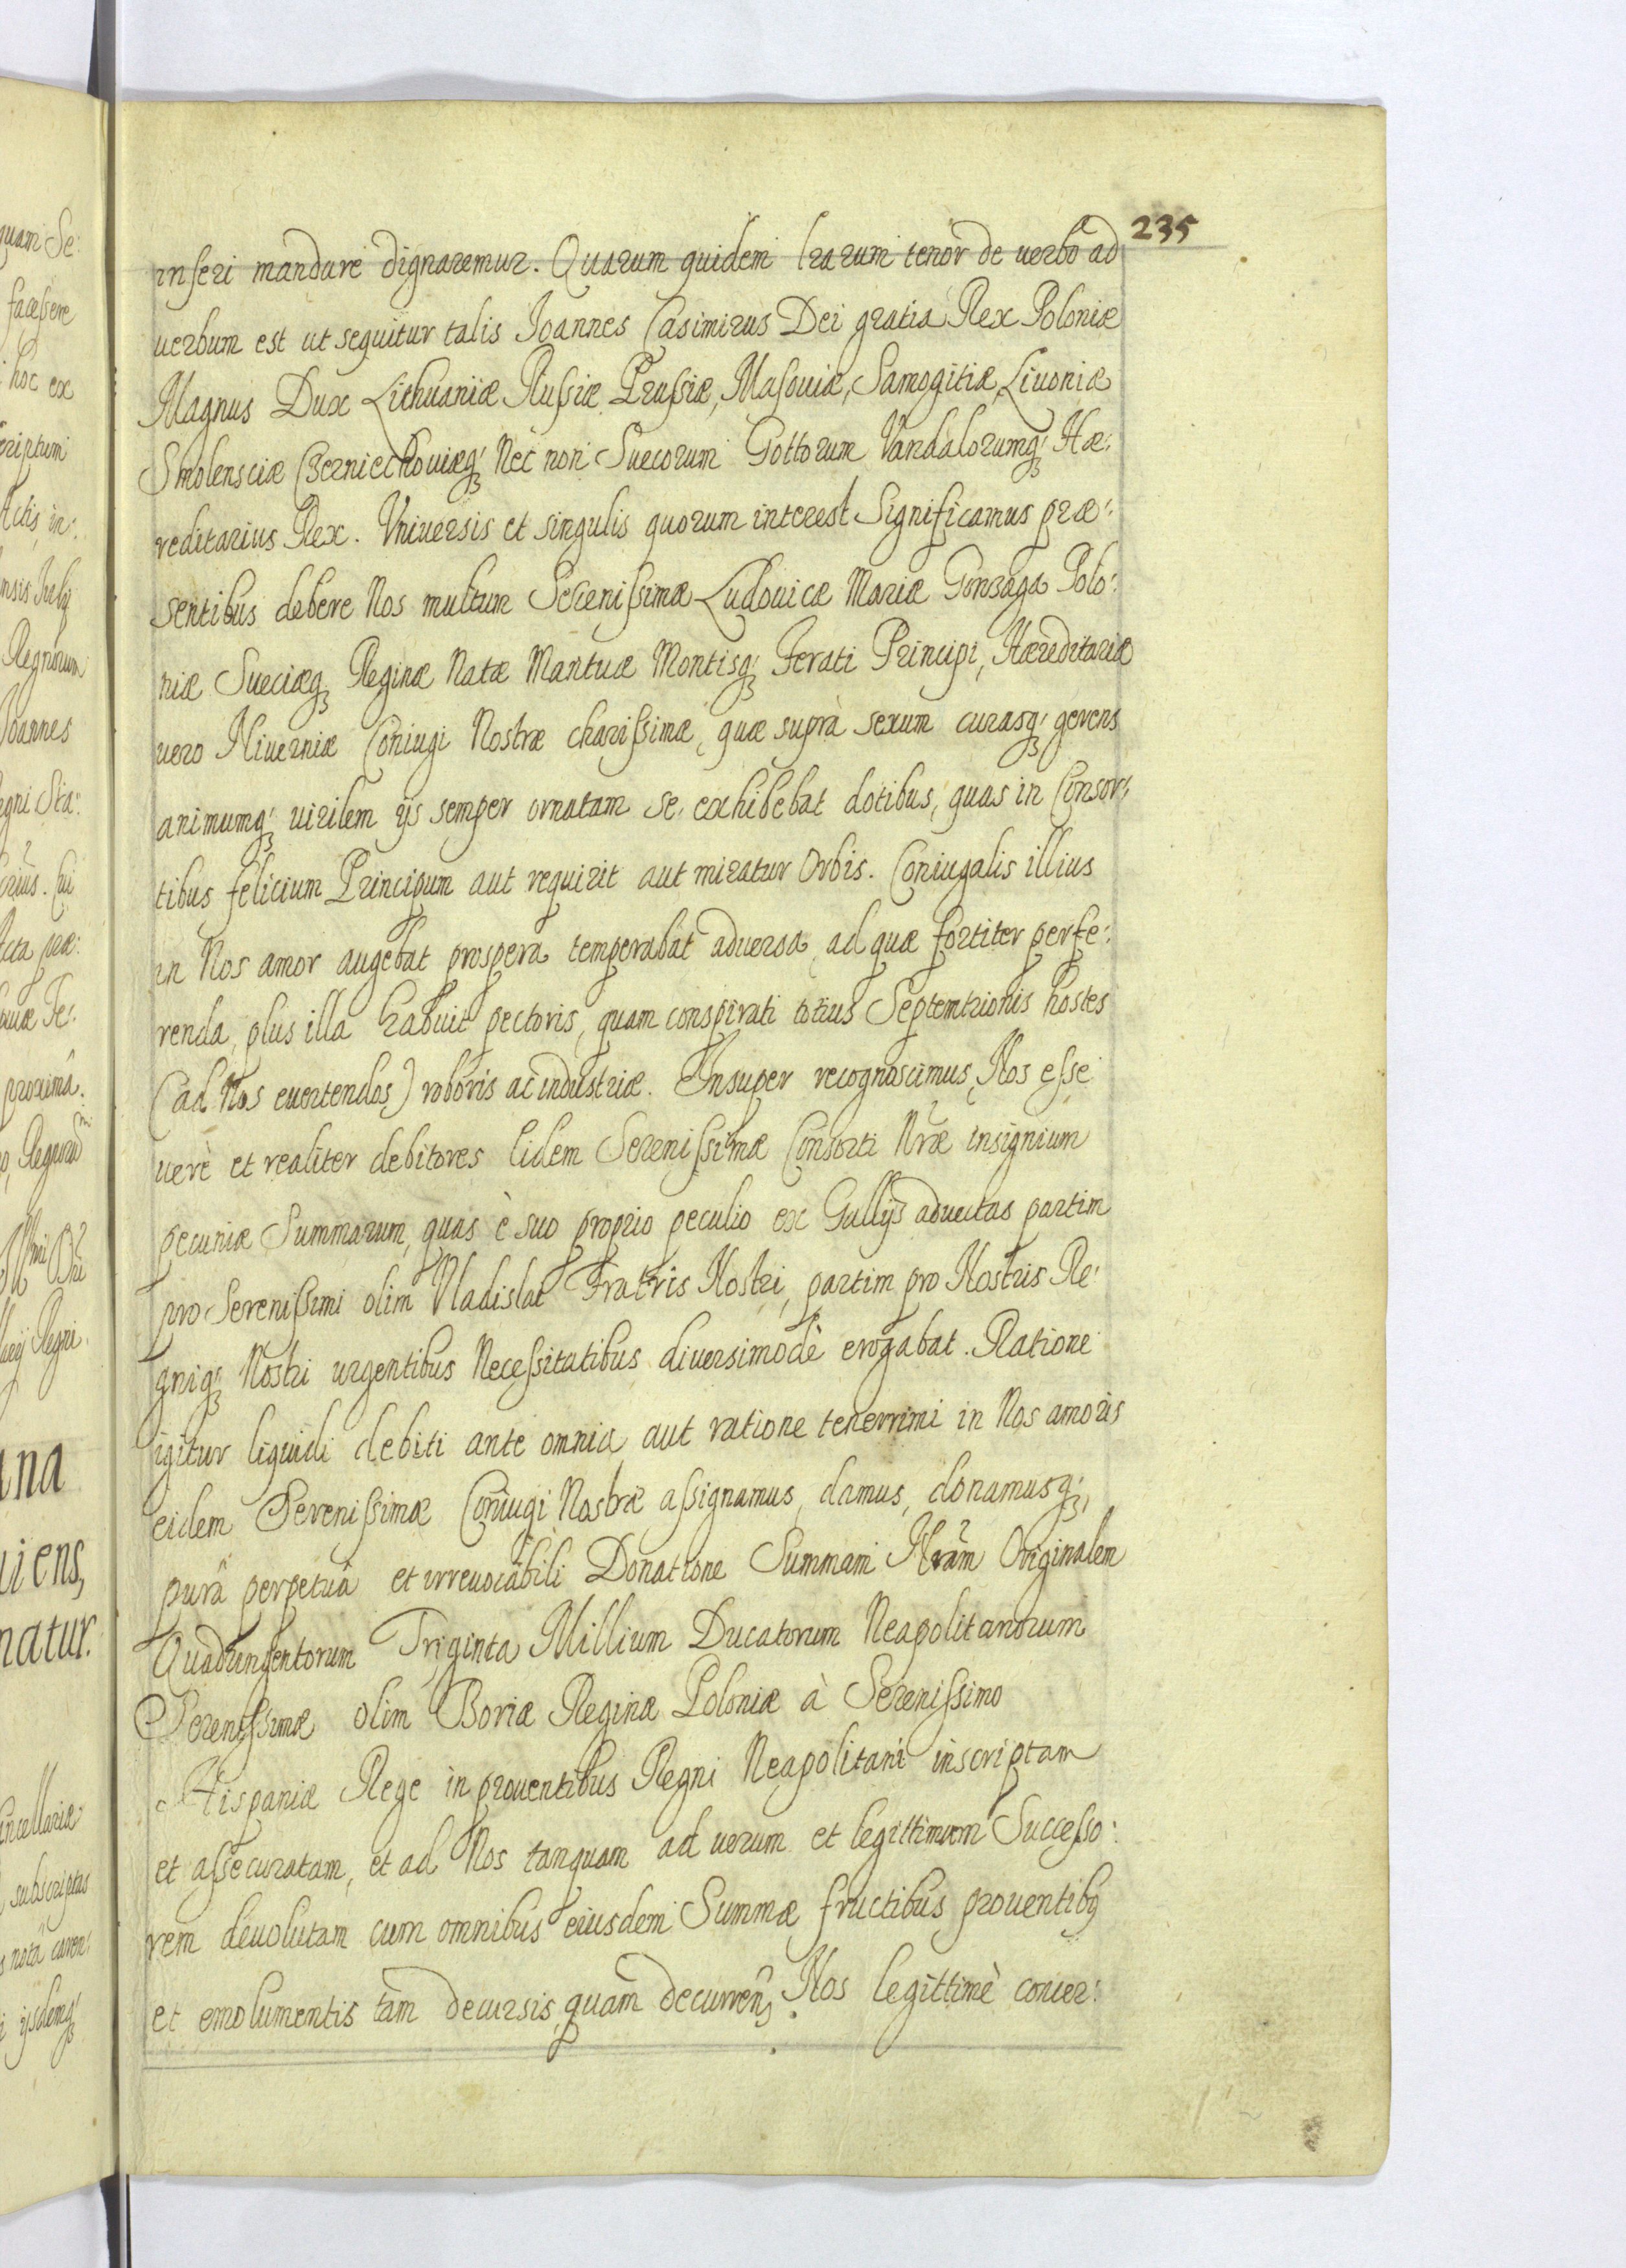 235
inseri mandare dignaremur. Quarum quidem lrarum tenor de uerbo ad
uerbum est ut sequitur talis Joannes Casimirus Dei gratia Rex Poloniæ
Magnus Dux Lithuaniæ Russiæ, Prussiæ, Masouiæ, Samogitiæ, Liuoniæ
Smolensciæ Czerniechouiæq; Nec non Suecorum Gottorum Vandalorumq; Hæ:
reditarius Rex. Vniuersis et singulis quorum interest Significamus præ:
sentibus debere Nos multum Serenissimæ Ludouicæ Mariæ Gonzaga Polo:
niæ Sueciæq; Reginæ Natæ Mantuæ Montisq; Ferati Principi, Hæreditariæ
uero Niuerniæ Coniugi Nostræ charissimæ, quæ suprà sexum curasq; gerens
animumq; uirilem ijs semper ornatam se exhibebat dotibus, quas in Consor:
tibus felicium Principum aut requirit aut miratur Orbis. Coniugalis illius
in Nos amor augebat prospera temperabat aduersa, ad quæ fortiter perfe:
renda, plus illa habuit pectoris, quam conspirati totius Septemtrionis hostes
(ad Nos euertendos) roboris ac industriæ. Insuper recognoscimus, Nos esse
uerè et realiter debitores Eidem Serenissimæ Consorti Nræ insignium
pecuniæ Summarum, quas è suo proprio peculio ex Gallijs aduectas partim
pro Serenissimi olim Vladislai Fratris Nostri, partim pro Nostris Re:
gniq; Nostri urgentibus Necessitatibus diuersimodè erogabat. Ratione
igitur liquidi debiti ante omnia, aut ratione tenerrimi in Nos amoris
eidem Serenissimæ Coniugi Nostræ assignamus, damus, donamusq;,
purâ perpetuâ et irreuocabili Donatione Summam Nram Originalem
Quadringentorum Triginta Millium Ducatorum Neapolitanorum
Serenissimæ olim Bonæ Reginæ Poloniæ à Serenissimo
Hispaniæ Rege in prouentibus Regni Neapolitani inscriptam
et assecuratam, et ad Nos tanquam ad uerum et legittimum Successo:
rem deuolutam cum omnibus eiusdem Summæ fructibus prouentibq
et emolumentis tàm decursis, quàm decurren, Nos legittimè concer: